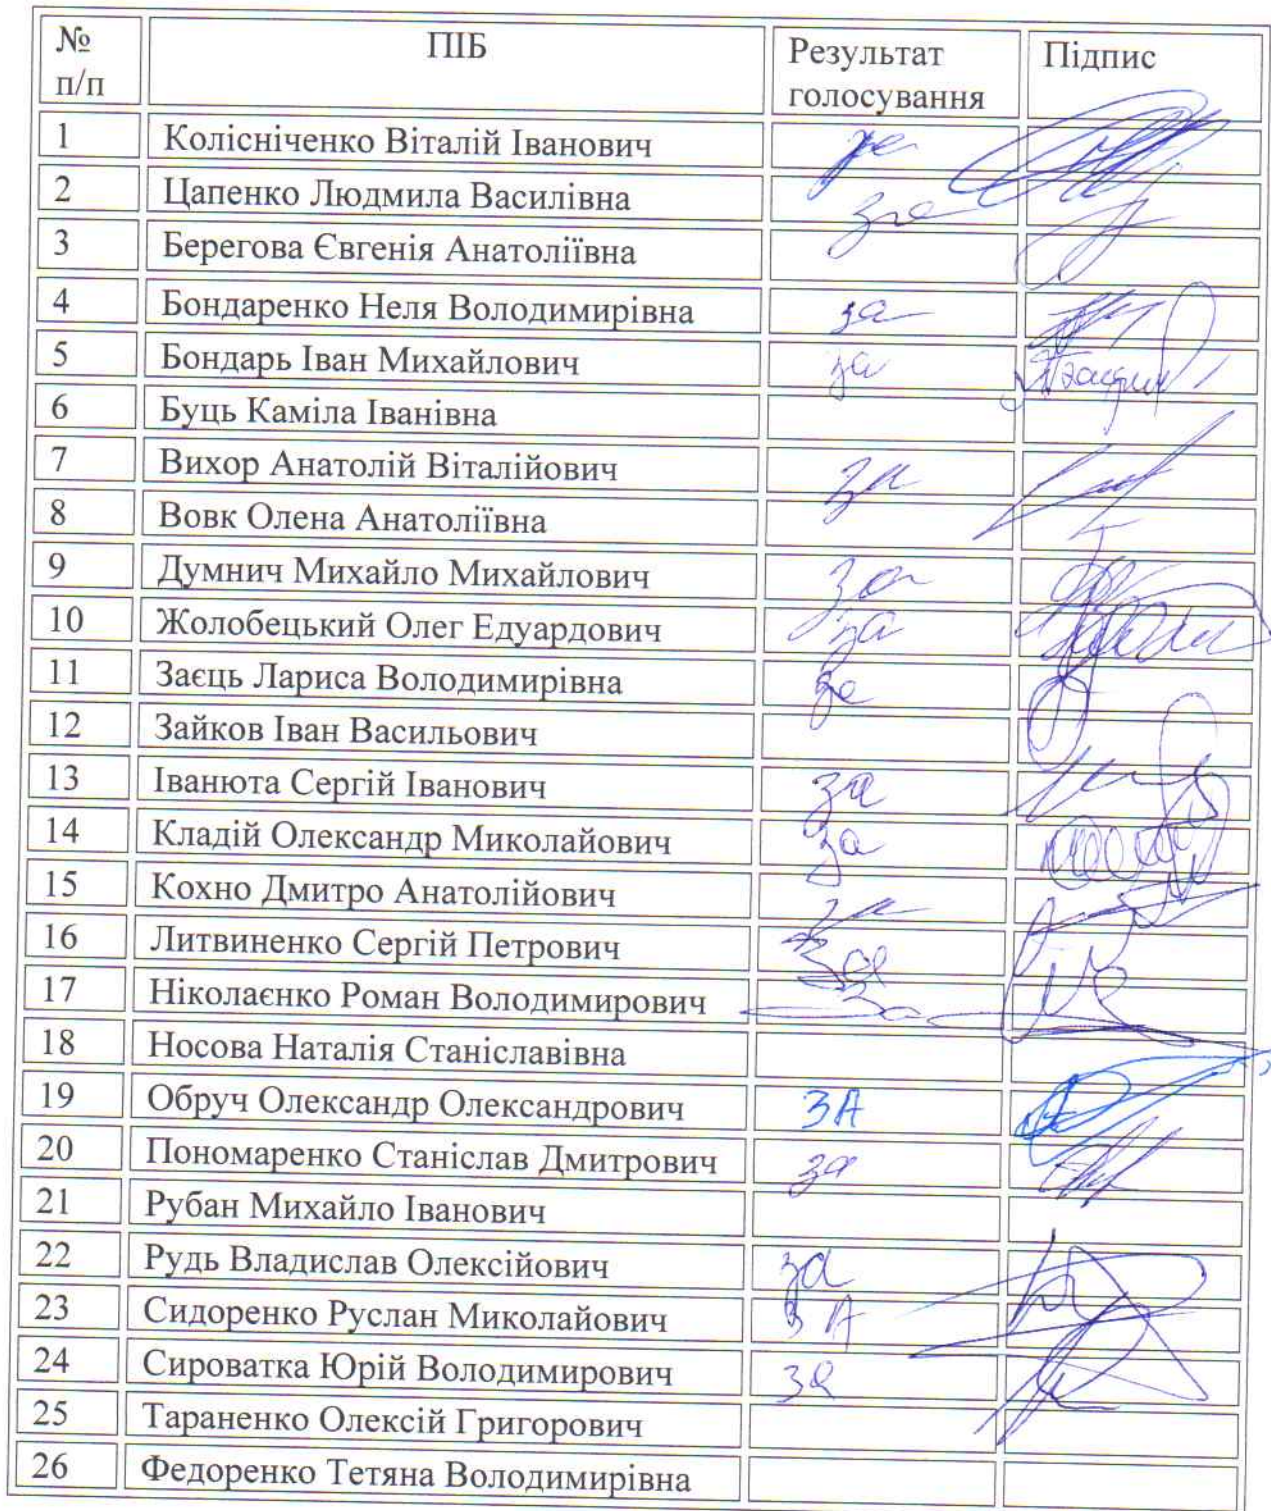 № п/п ПІБ Результат голосування Підпис
1 Колісніченко Віталій Іванович за
2 Цапенко Людмила Василівна за
3 Берегова Євгенія Анатоліївна
4 Бондаренко Неля Володимирівна за
5 Бондарь Іван Михайлович за
6 Буць Каміла Іванівна
7 Вихор Анатолій Віталійович за
8 Вовк Олена Анатоліївна
9 Думнич Михайло Михайлович за
10 Жолобецький Олег Едуардович за
11 Заєць Лариса Володимирівна за
12 Зайков Іван Васильович
13 Іванюта Сергій Іванович за
14 Кладій Олександр Миколайович за
15 Кохно Дмитро Анатолійович за
16 Литвиненко Сергій Петрович за
17 Ніколаєнко Роман Володимирович за
18 Носова Наталія Станіславівна
19 Обруч Олександр Олександрович ЗА
20 Пономаренко Станіслав Дмитрович за
21 Рубан Михайло Іванович
22 Рудь Владислав Олексійович за
23 Сидоренко Руслан Миколайович ЗА
24 Сироватка Юрій Володимирович за
25 Тараненко Олексій Григорович
26 Федоренко Тетяна Володимирівна